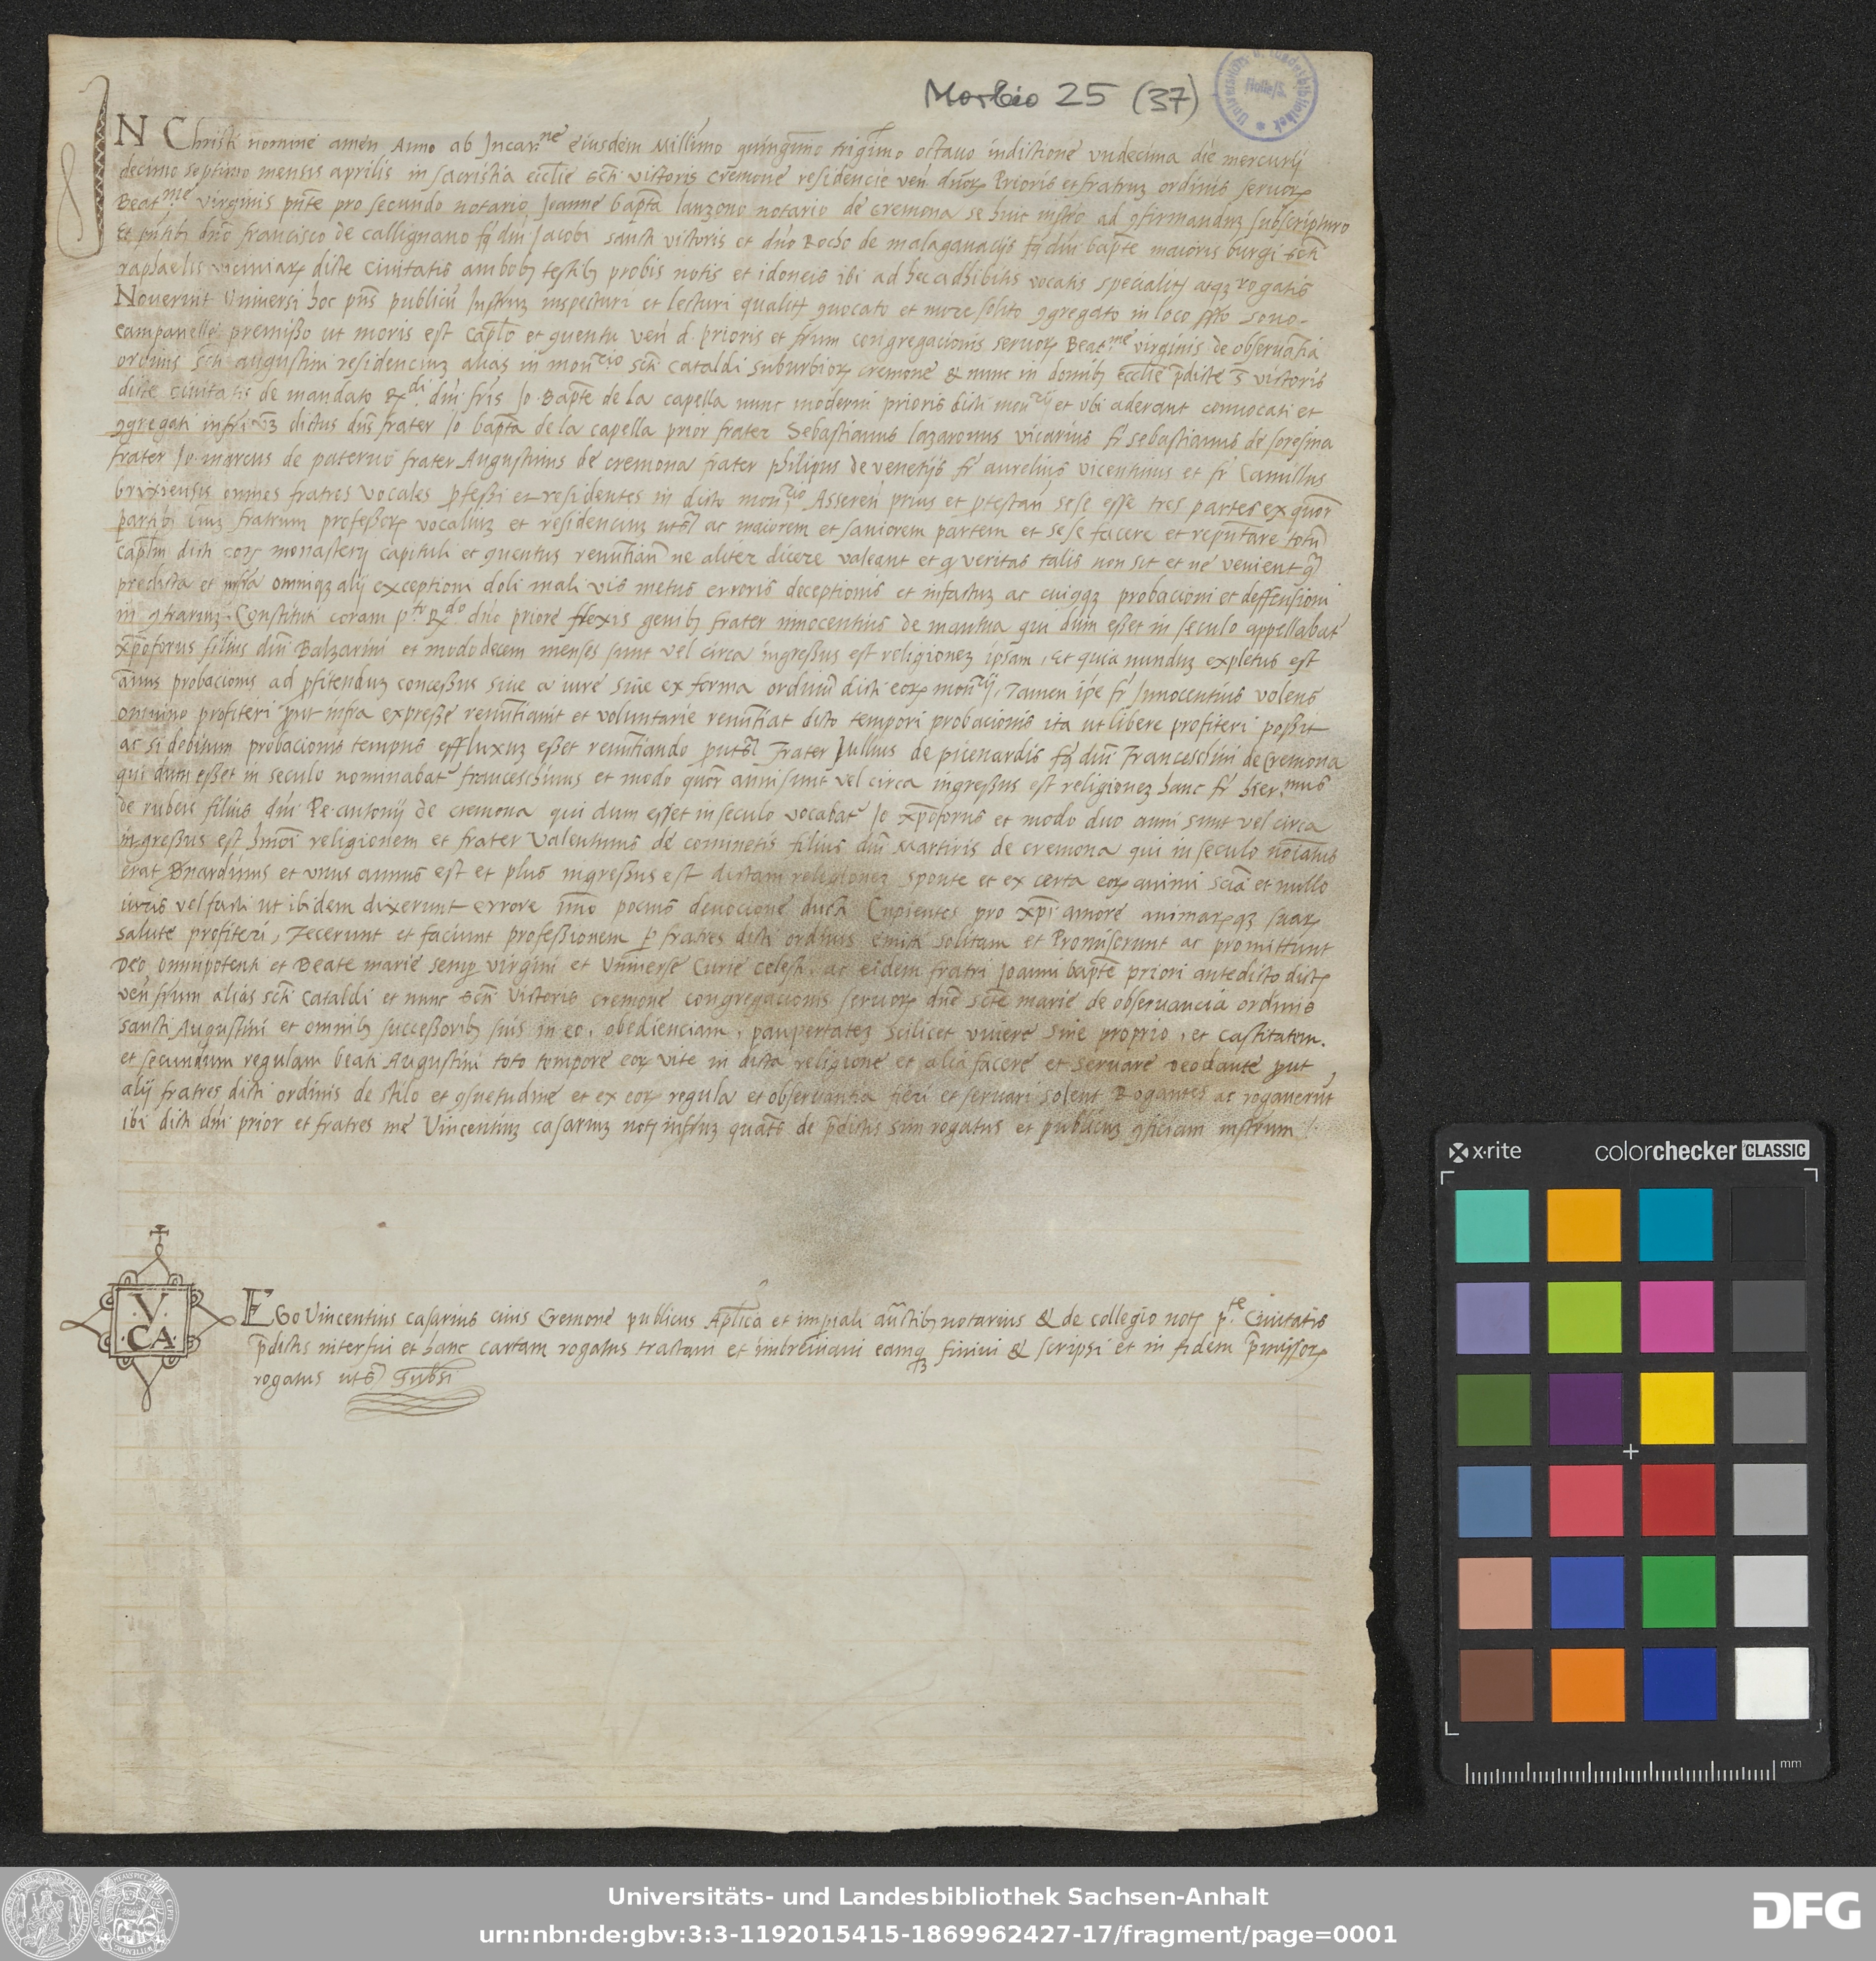 Morbio 25 (37)
IN Christi nomine amen Anno ab Incar.ne eiusdem Millimo quingmo trigmo octauo indictione vndecima die mercurij
decimo septimo mensis aprilis in sacristia ecclie scti victoris cremone residencie ven dnoꝝ Prioris et fratruz ordinis seruoꝝ
Beat.me virginis pnte pro secundo notario Joanne bapta lanzono notario de cremona se huic instro ad ꝯfirmanduz subscripturo
Et pntibȝ dno francisco de callignano fq dni Jacobi sancti victoris et dno Rocho de malagauacijs fq dni bapte maioris burgi scti
raphaelis viciniaꝝ dicte ciuitatis ambobȝ testibȝ probis notis et idoneis ibi ad hec adhibitis vocatis specialitȝ atqȝ rogatis
Nouerint Vniuersi hoc pns publicu Instruz inspecturi et lecturi qualitȝ ꝯuocato et more solito ꝯgregato in loco sono
campanelle premisso ut moris est caplo et ꝯuentu ven d. prioris et frum congregacionis seruoꝝ Beat.me virginis de obseruantia
ordinis scti augustini residenciuz alias in mon.rio scti cataldi suburbioꝝ cremone & nunc in domibȝ ecclie pdicte s victoris
dicte ciuitatis de mandato Rdi dni fris Jo. Bapte de la capella nunc moderni prioris dicti mon.rij et vbi aderant conuocati et
ꝯgregati dictus dns frater Jo bapta de la capella prior frater Sebastianus lazaronus vicarius fr sebastianus de soresina
frater Jo. marcus de paterno frater Augustinus de cremona frater philipus de venetijs fr aurelius vicentinus et fr Camillus
brixiensis omnes fratres vocales pfessi et residentes in dicto mon.rio Asseren prius et ptestan sese esse tres partes ex quor
partibȝ fratrum professoꝝ vocaliuz et residenciuz uts ac maiorem et saniorem partem et sese facere et reputare totu
caplm dicti eoꝝ monasterij capituli et ꝯuentus renuntian ne aliter dicere valeant et q veritas talis non sit et ne venient
predicta et infra omniqȝ alij exceptioni doli mali vis metus erroris deceptionis et infactuz ac cuiqqȝ probacioni et deffensioni
in ꝯtrariuz. Constituti coram p.to Rdo dno priore flexis genibȝ frater innocentius de mantua qui dum esset in seculo appellabat
xpoforus filius dni Balzarini et modo decem menses sunt vel circa ingressus est religionez ipsam, et quia nunduz expletus est
annus probacionis ad pfitenduz concessus siue a iure siue ex forma ordinu dicti eoꝝ mon.rij, Tamen ipe fr Innocentius volens
omnino profiteri put infra expresse renuntiauit et voluntarie renuntiat dicto tempori probacionis ita ut libere profiteri possit
ac si debitum probacionis tempus effluxuz esset renuntiando put s Frater Jullius de picenardis fq dni Franceschini de Cremona
qui dum esset in seculo nominabat franceschinus et modo quor anni sunt vel circa ingressus est religionez hanc fr hier.mus
de rubeis filius dni Pe. antonij de cremona qui dum esset in seculo vocabat Jo xpoforus et modo duo anni sunt vel circa
ingressus est hmoi religionem et frater Valentinus de cominetis filius dni Martiris de cremona qui in seculo noiatus
erat Bnardinus et vnus annus est et plus ingressus est dictam religionez sponte et ex certa eoꝝ animi scia et nullo
iuris vel facti ut ibidem dixerunt errore imo pocius deuocione ducti Cupientes pro xpi amore animaꝝqȝ suaꝝ
salute profiteri, Fecerunt et faciunt professionem p fratres dicti ordinis emitti solitam et Promiserunt ac promittunt
Deo omnipotenti et Beate marie semp virgini et Vniuerse Curie celesti, ac eidem fratri Joanni bapte priori antedicto dictoꝝ
ven frum alias scti cataldi et nunc scti Victoris cremone congregacionis seruoꝝ dne scte marie de obseruancia ordinis
sancti Augustini et omnibȝ successoribȝ suis in eo, obedienciam, paupertatez scilicet viuere sine proprio, et castitatem.
et secundum regulam beati Augustini toto tempore eoꝝ vite in dicta religione et alia facere et seruare deo dante put
alij fratres dicti ordinis de stilo et ꝯsuetudine et ex eoꝝ regula et obseruantia fieri et seruari solent Rogantes ac rogauerut
ibi dicti dni prior et fratres me Vincentiuz casariuz notȝ infruz quats de pdictis sim rogatus et publicuz ꝯficiam instrum
V
CA
EGo Vincentius casarius ciuis Cremone publicus Aplica et impiali auctibȝ notarius & de collegio notȝ p.te Ciuitatis
pdictis interfui et hanc cartam rogatus tractaui et imbreuiaui eamqȝ finiui & scripsi et in fidem pmissoꝝ
rogatus uts Subsi
x·rite
colorchecker CLASSIC
mm
Universitäts- und Landesbibliothek Sachsen-Anhalt
urn:nbn:de:gbv:3:3-1192015415-1869962427-17/fragment/page=0001
DFG